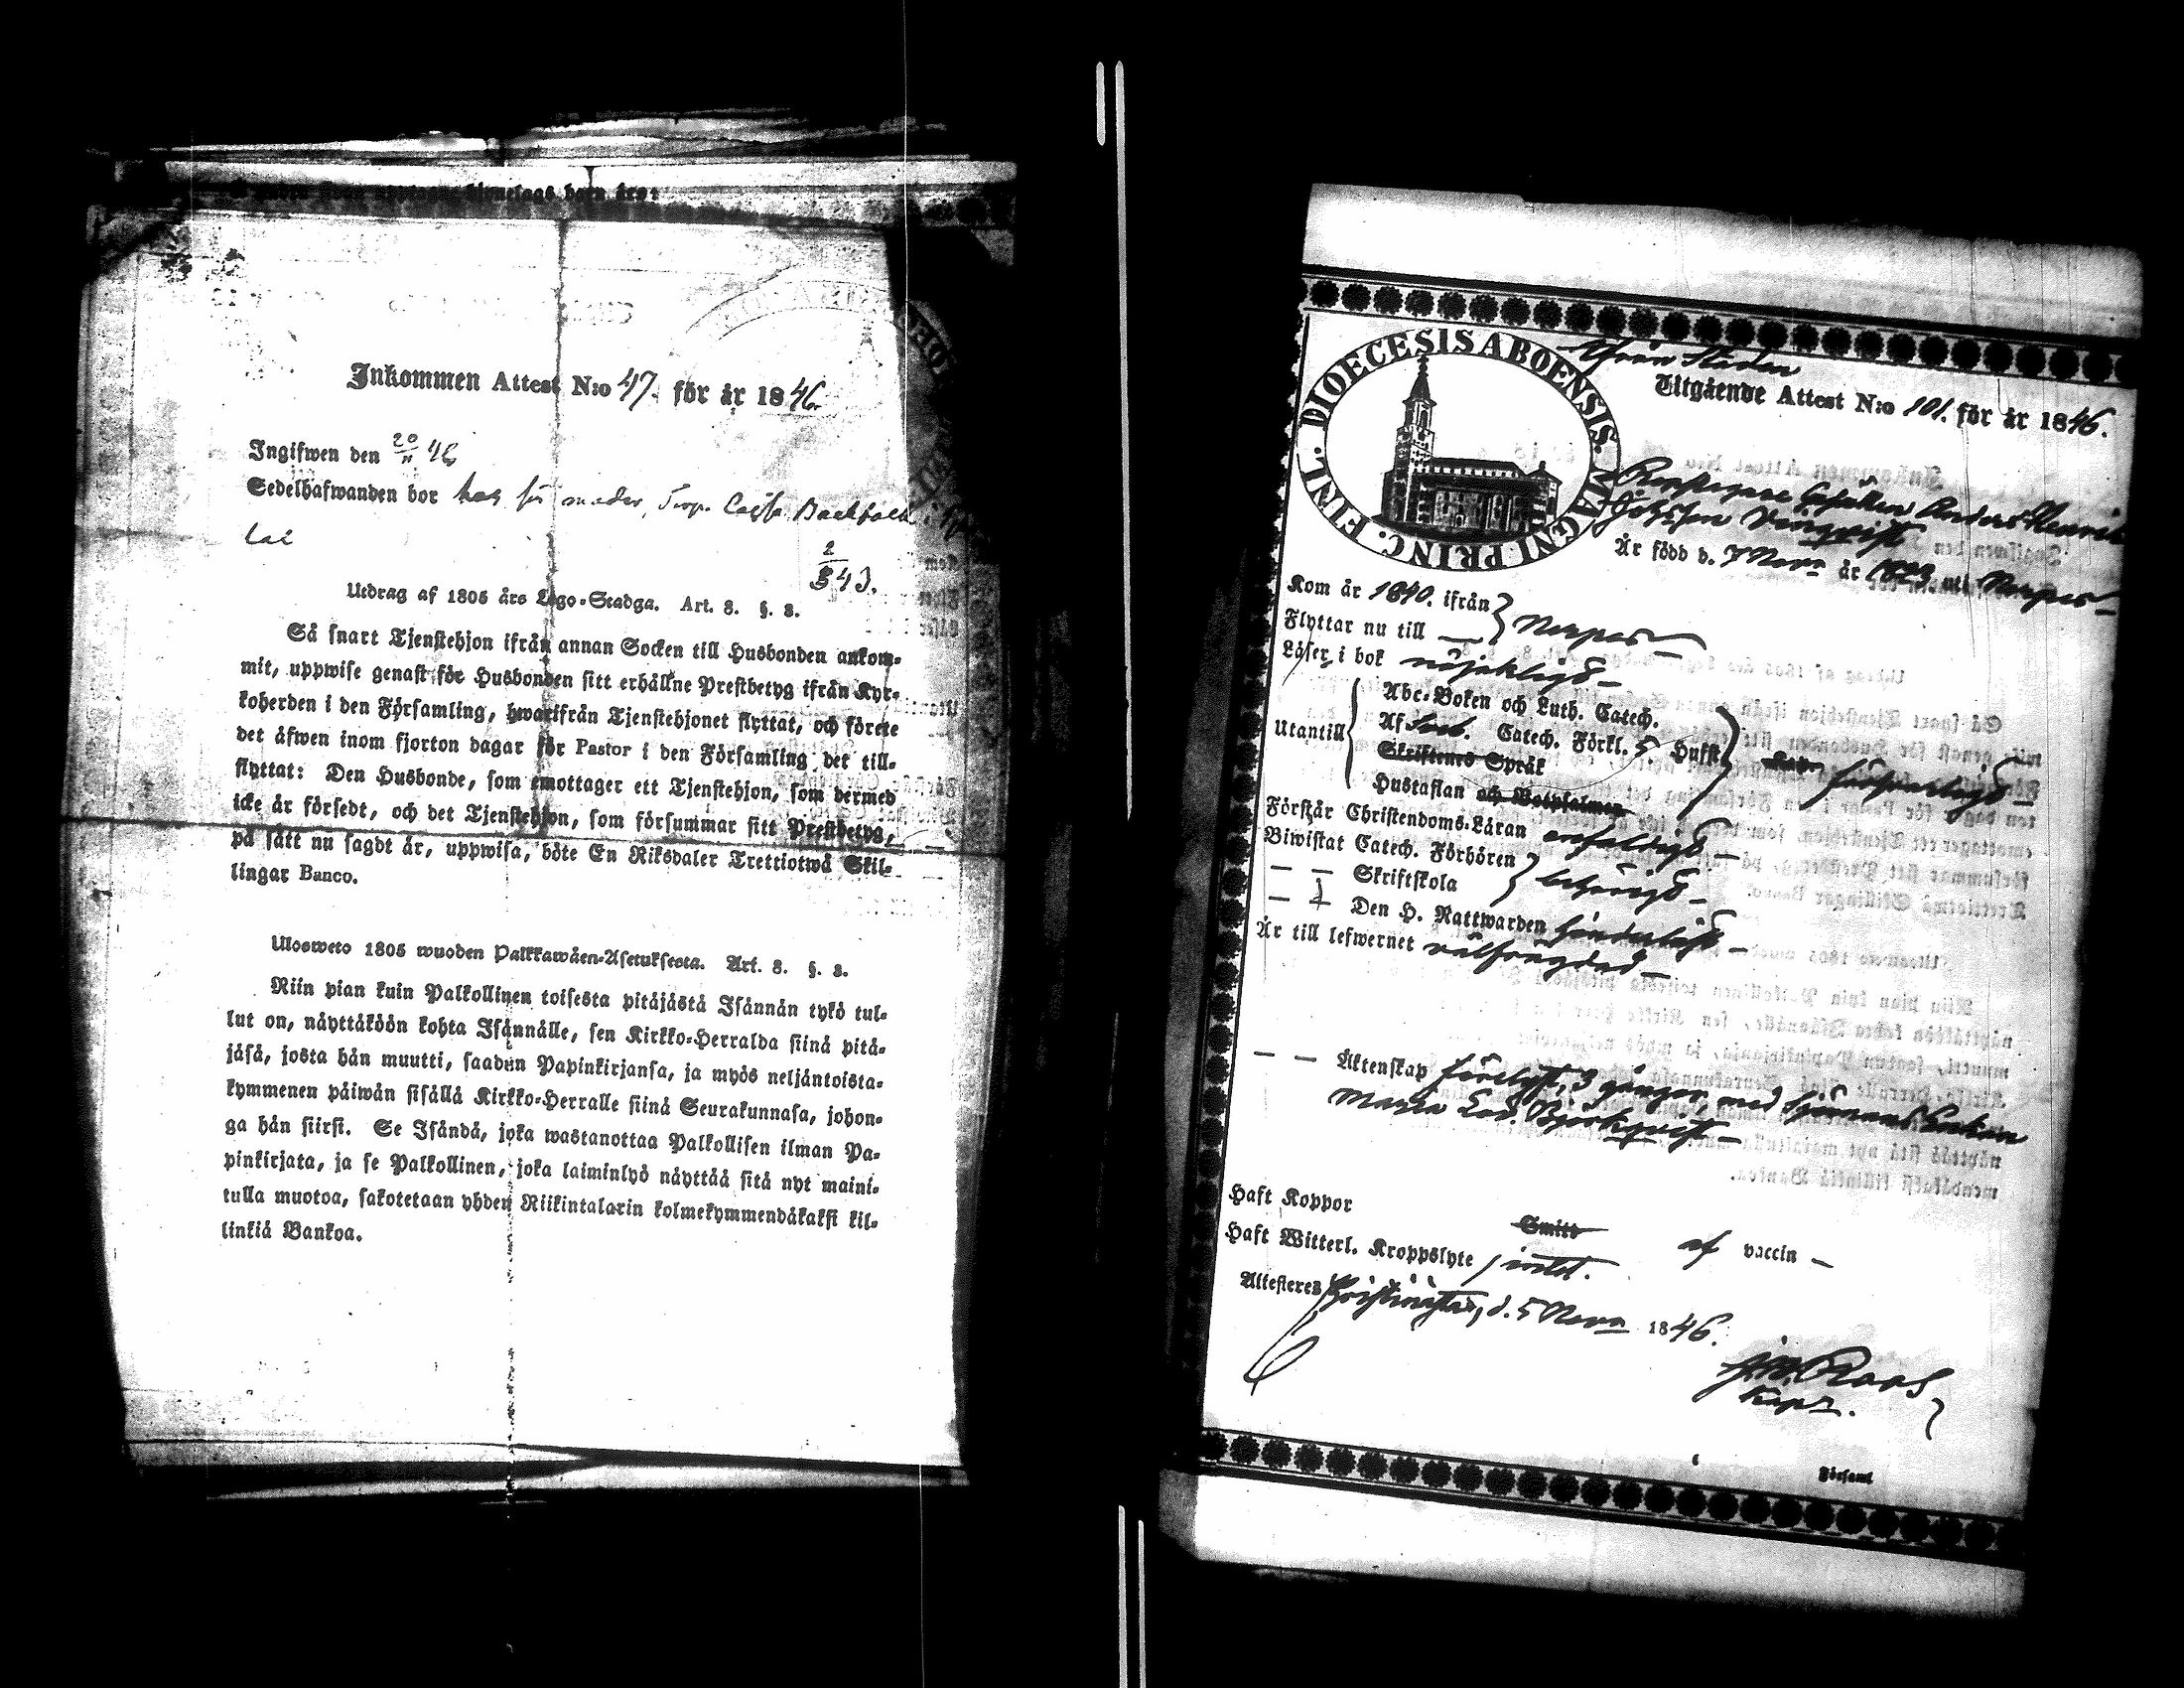 Inkommen Attest N:o 47. för år 1846.
Ingifwen den 20/11 46
Sedelhafwanden bor hos sin moder, Torp. Cajsa
2/543.
Utdrag af 1805 års Lego-Stadga. Art. 8. §. 2.
Så snart Tjenstehjon ifrån annan Socken till Husbonden ankom-
mit, uppwise genast för Husbonden sitt erhållne Prestbetyg ifrån Kyr-
koherden i den Församling, hwarifrån Tjenstehjonet flyttat, och förete
det äfwen inom fjorton dagar för Pastor i den Församling det till-
flyttat: Den Husbonde, som emottager ett Tjenstehjon, som dermed
icke är försedt, och det Tjenstehjon, som försummar sitt Prestbetyg,
på sätt nu sagdt är, uppwisa, böte En Riksdaler Trettiotwå Skil-
lingar Banco.
Ulosweto 1805 wuoden Palkkawäen-Asetuksesta. Art. 8. §. 2.
Niin pian kuin Palkollinen toisesta pitäjästä Isännän tykö tul-
lut on, näyttäköön kohta Isännälle, sen Kirkko-Herralda siinä pitä-
jäsä, josta hän muutti, saadun Papinkirjansa, ja myös neljäntoista-
kymmenen päiwän sisällä Kirkko-Herralle siinä Seurakunnasa, johon-
ga hän siirsi. Se Isändä, joka wastanottaa Palkollisen ilman Pa-
pinkirjata, ja se Palkollinen, joka laiminlyö näyttää sitä nyt maini-
tulla muotoa, sakotetaan yhden Riikintalarin kolmekymmendäkaksi kil-
linkiä Bankoa.
DIOECESIS ABOENSIS. MAGNI PRINC. FINL.
Ifrån Staden
Utgående Attest N:o 101. för år 1846.
Repslagare Gesällen Anders Henrik
Johsson
Är född d. 7 Nov. år 1823 uti Nerpes
Kom år 1840. ifrån
Flyttar nu till — } Nerpes
Läser i bok nöjaktigt
Utantill
Abc-Boken och Luth. Catech.
Af Sveb. Catech. Förkl. 5 Hufst.
Skriftenes Språk
Hustaflan och Botpsalmen
försvarligt
Förstår Christendoms-Läran enfaldigt
Biwistat Catech. Förhören
— — Skriftskola } behörigt
— — Den H. Nattwarden
Är till lefwernet välfrägdad
— — Äktenskap förelyst, 3 gånger, med Sjömans Enkan
Maria Lov. Björkqvist
Haft Koppor Smitto af vaccin —
Haft Witterl. Kroppslyte intet.
Attesteres Christinestad, d. 5 Nov. 1846.
Roos
Kapn.
Församl